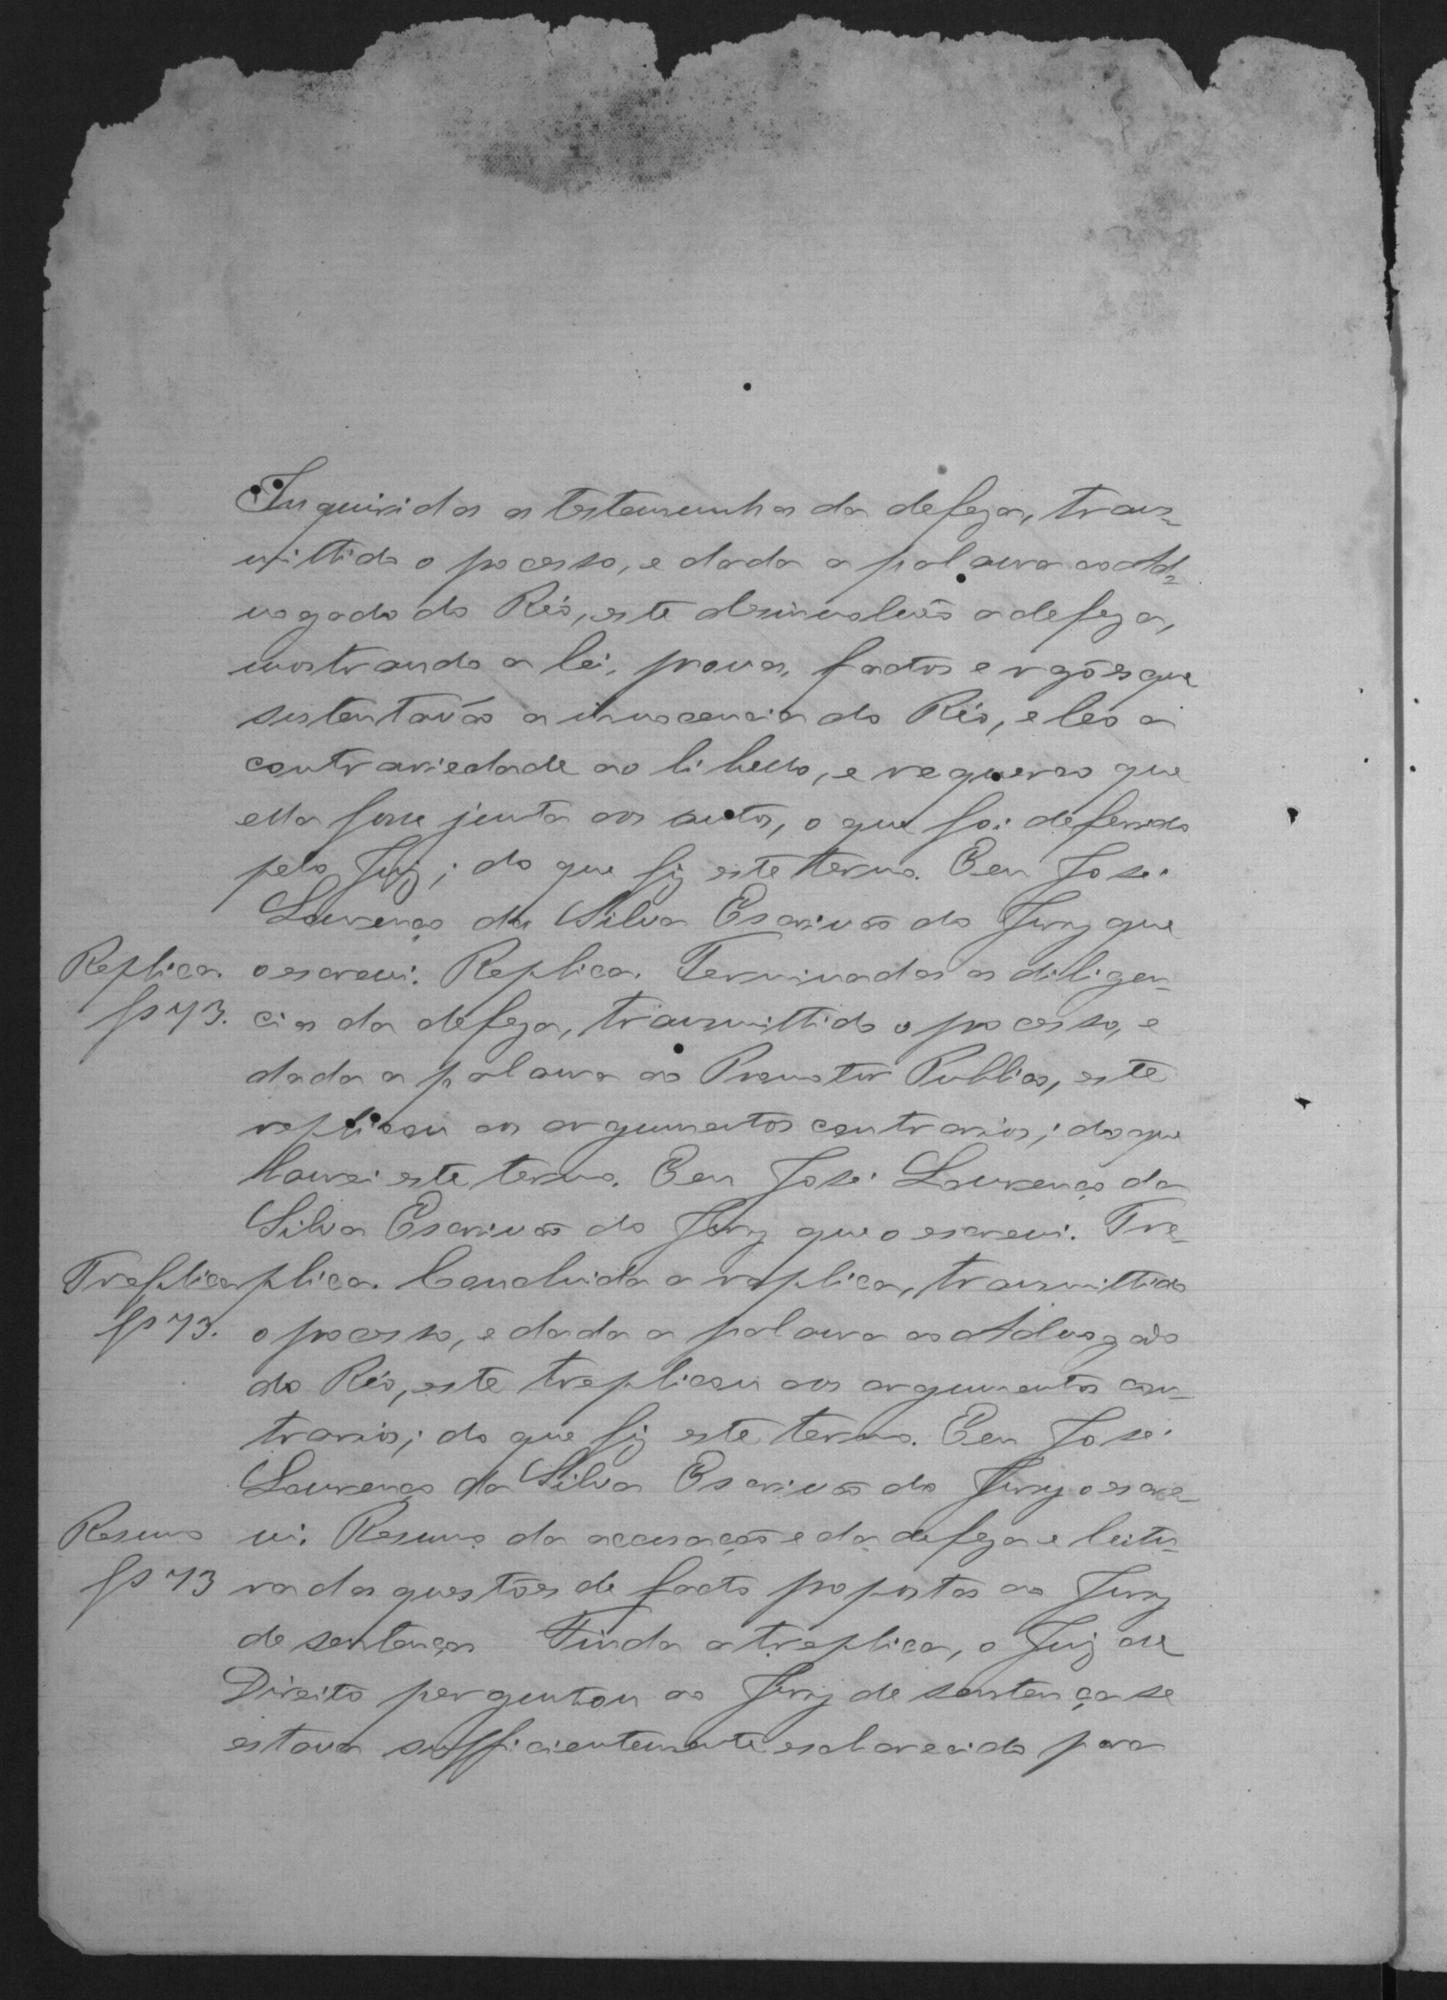 Inquiridas as testemunhas da defeza, trans-
mittido o pocesso, e dada a palavra ao Ad-
vogado do Réo, este desinvolvêo a defeza,
mostrando a lei, provas, factos e rasões que
sustentavão a innocencia do Réo, e leo a
contrariedade ao libello, e requereo que
ella fosse junta aos autos, o que foi deferido
pelo Juiz; do que fiz este termo. Eeu José
Lourenço da Silva Escrivão do Jury que
Replica. o escrevi. Replica. Terminadas as diligen-
fs 73. cias da defeza, transmittido o pocesso, e
dada a palavra ao Promotor Publico, este
replicou aos argumentos contrarios; do que
lavrei este termo. Eeu José Lourenço da
Silva Escrivão do Jury que o escrevi. Tre-
Treplica plica. Concluida a replica, transmittido
fs 73. o pocesso, e dada a palavra ao Advogado
do Réo, este treplicou aos argumentos con-
trarios; do que fiz este termo. Eeu José
Lourenço da Silva Escrivão do Jury o escre-
Resumo vi. Resumo da accusação e da defeza e leitu-
fs 73 ra das questões de facto propostas ao Jury
de sentença Finda a treplica, o Juiz de
Direito perguntou ao Jury de sentença se
estava sufficientemente esclarecido para